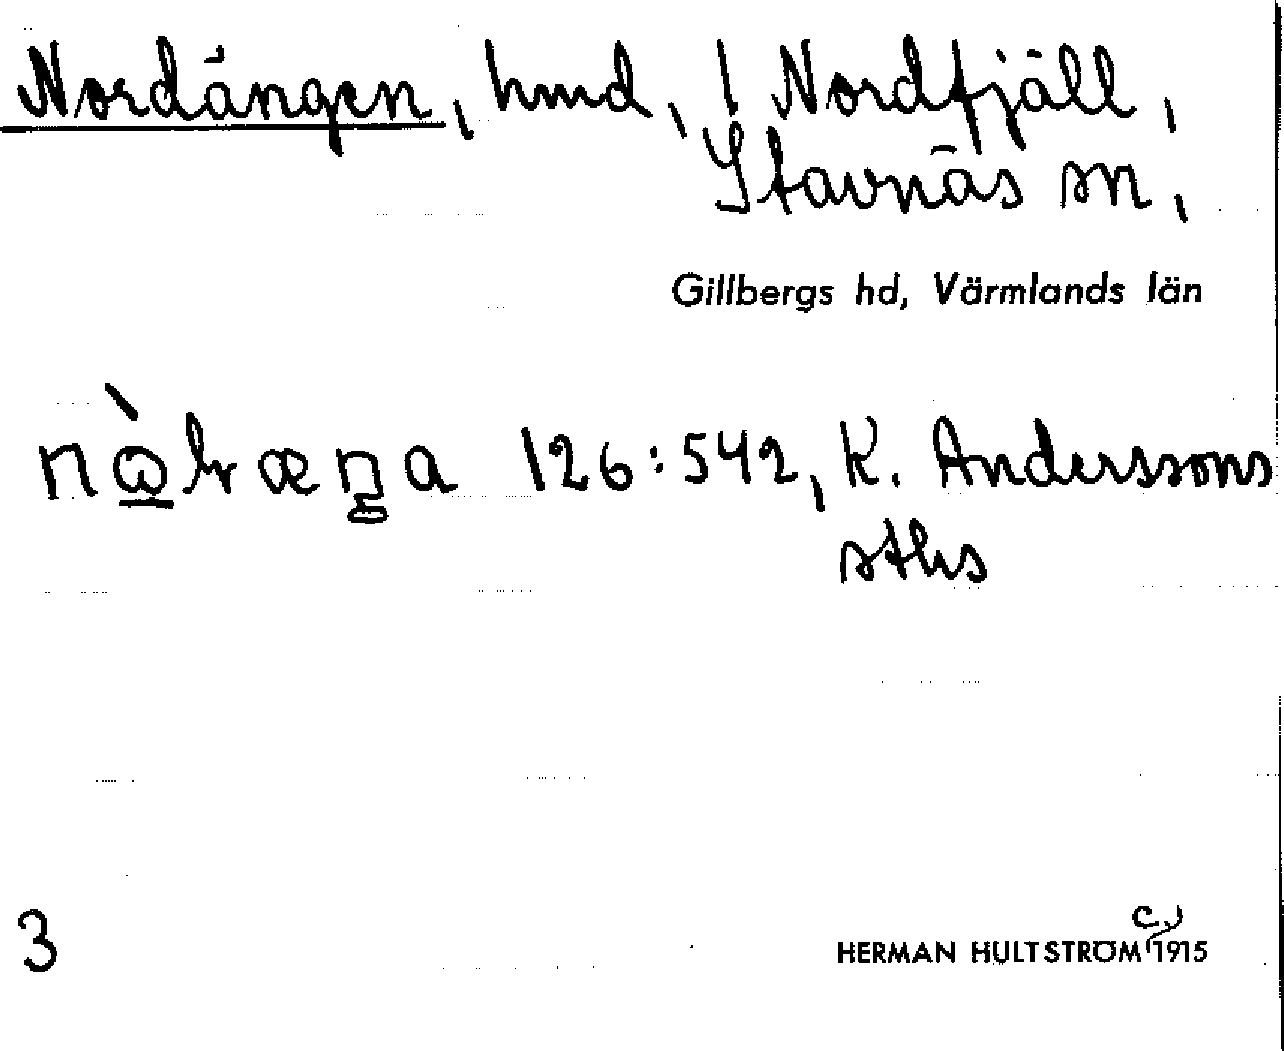 Nordängen, hmd, / Nordfjäll,
Stavnäs sn,
Gillbergs hd, Värmlands län
126:542, K. Anderssons
sths
3
HERMAN HULTSTRÖM c. 1915